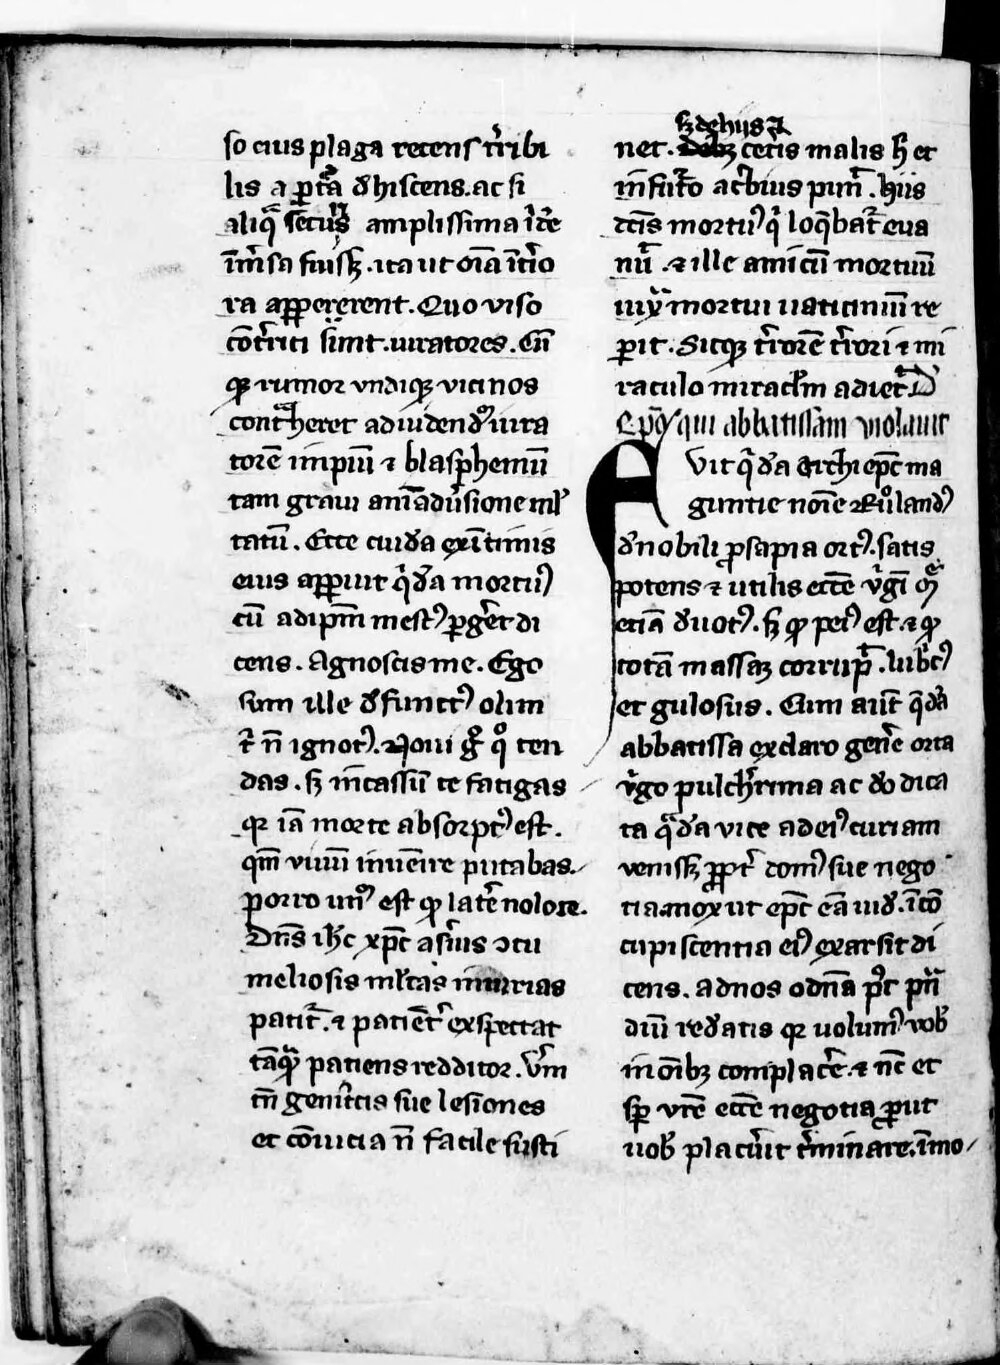 so eius plaga recens t'ribi
lis a p̲ta dhiscens. ac si
aliq̃ secur̃ amplissima ĩde
ĩm̃sa fuisꝫ. ita ut oĩa ĩt'io
ra aꝑꝑererent. Quo viso
cõt'riti sũt. iuratores. Cũ
qꝫ rumor vndiqꝫ vicinos
cont̃heret ad uidend᷒ iura
torẽ impiũ ⁊ blasphemũ
tam graui anĩaduͥsione ml̕
tatũ. Ecce cuida ex ĩtimis
eius aꝑꝑuit qͥda mortu᷒
cũ adip̃m mest᷒ ꝑg̃et di
cens. Agnoscis me. Ego
sum ille dfunct᷒ olim
t̕ ñ ignot᷒. Noui g̊ q̊ ten
das. sꝫ incassũ te fatigas
qr iã morte absorpt᷒ est.
qm̃ viuũ inuẽire putabas.
porro un᷒ est ꝙ latẽ nolo te.
Dñs ihc xp̃c a suis ꝯtu
meliosis ml̕tas iniurias
patit̕. ⁊ patiẽt̕ exspectat
tãqͣ patiens redditor. Vm̃
tñ genit̕cis sue lesiones
et cõuicia ñ facile susti
sꝫ de hiis ⁊
net. cet̕is malis hͨ et
in fut̕o ac̕bius pun̕. hiis
dc̃is mortu᷒ qͥ loq̃bat̕ eua
nũ. ⁊ ille amicũ mortuũ
iux̃ mortui uaticiniũ re
ꝑit. Sicqꝫ t'rorẽ t'rori ⁊ mi
raculo miracl̕m adiec̕ D
Ep̃s qui abbatissam violauit
Vit qͥda Archiep̃c ma
guntie noĩe Ruͦland᷒
d nobili ꝓsapia ort᷒. satis
potens ⁊ utilis eccẽ v̕gĩ m̃
eciã duot᷒. sꝫ ꝙ pei᷒ est. ⁊ ꝙ
totã massaꝫ corrup̃. lubc᷒
et gulosus. Cum aũt q̃da
abbatissa ex claro geñe orta
v̕go pulch̕rima ac do dica
ta qͣda vice ad ei᷒ curiam
venissꝫ ꝓpt̕ dom᷒ sue nego
tia. mox ut ep̃c eã uid. ĩcõ
cupiscentia ei᷒ exarsit di
cens. ad nos odña p̕t pñ
diũ redatis qr uolum᷒ vob̕
in oĩbꝫ complacẽ. ⁊ nc̃ et
sp̃ vrẽ eccẽ negotia ꝓut
uob̕ placu̕it t̕minare. ĩmo